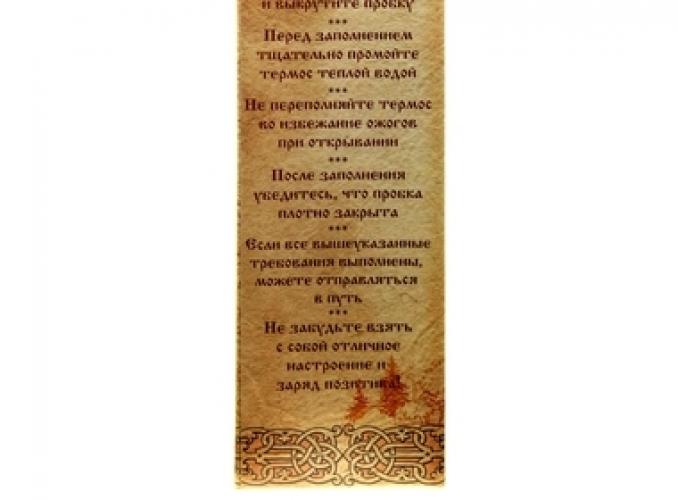 и выкрутите пробку
***
Перед заполнением
тщательно промойте
термос теплой водой
***
Не переполняйте термос
во избежание ожогов
при открывании
***
После заполнения
убедитесь, что пробка
плотно закрыта
***
Если все вышеуказанные
требования выполнены,
можете отправляться
в путь
***
Не забудьте взять
с собой отличное
настроение и
заряд позитива!